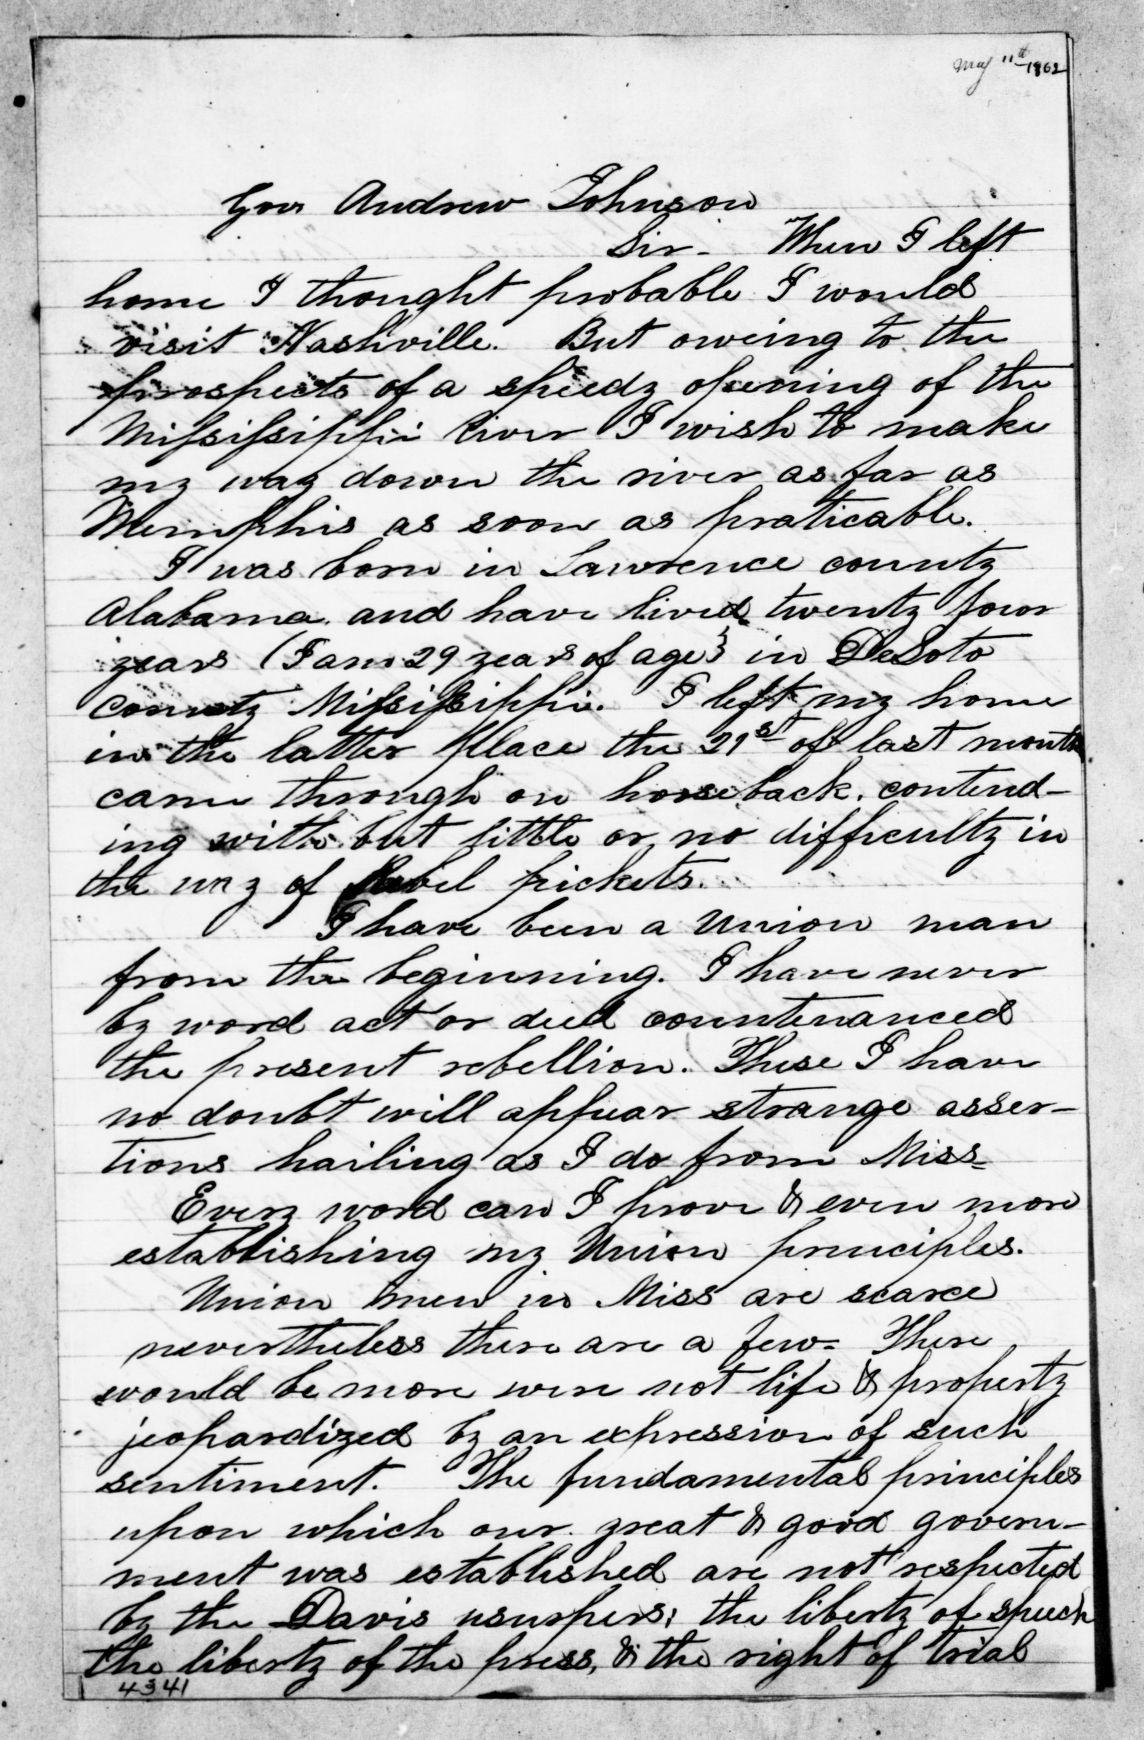 May 11th 1862
Gov Andrew Johnson
Sir - When I left
home I thought probable I would
visit Nashville. But oweing to the
prospects of a speedy opening of the
Mississippi River I wish to make
my way down the river as far as
Memphis as soon as praticable.
I was born in Lawrence county
Alabama and have lived twenty four
years (I am 29 years of age) in DeSoto
county Mississippi. I left my home
in the latter place the 21st of last month
came through on horseback. contend-
ing with but little or no difficulty in
the way of Rebel pickets.
I have been a Union man
from the beginning. I have never
by word act or deed countenanced
the present rebellion. These I have
no doubt will appear strange asser-
tions hailing as I do from Miss-
Every word can I prove & even more
establishing my Union principles.
Union men in Miss are scarce
nevertheless there are a few- There
would be more were not life & property
jeopardized by an expression of such
sentiment. The fundamental principles
upon which our great & good govern-
ment was established are not respected
by the Davis usurpers; the liberty of speech
the liberty of the press, & the right of trial
4341